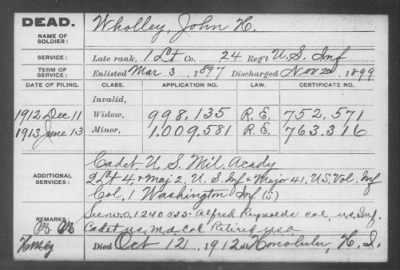 DEAD.
NAME OF SOLDIER: Wholley, John H.
SERVICE: Late rank, 1 Lt Co. 24 Reg't U.S. Inf
TERM OF SERVICE: Enlisted Mar 3, 1897 Discharged Nov 1899
DATE OF FILING. CLASS. APPLICATION NO. LAW. CERTIFICATE NO.
Invalid,
1912 Dec 11 Widow, 998,135 R.E. 752,571
1913 June 13 Minor, 1,009,581 R.E. 763,316
ADDITIONAL SERVICES: Cadet U.S. Mil. Acady
2 Lt 4, & Maj 2, U.S. Inf & Major 41, U.S. Vol. Inf
Col. 1 Washington Inf (S)
REMARKS: 1240055. Alfred Reynolds col. U.S. Inf.
Cadet
Died Oct 12, 1912 Honolulu, H.I.